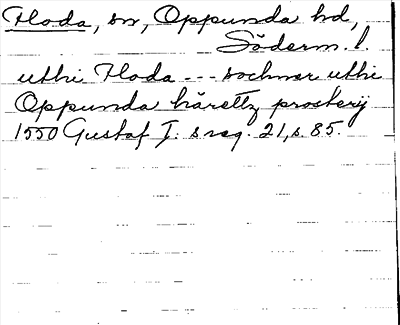 Floda, sn, Oppunda hd,
Söderm. l.
uthi Floda --- sochner uthi
Oppunda häretz prosterij
1550 Gustaf I: s reg. 21, s. 85.